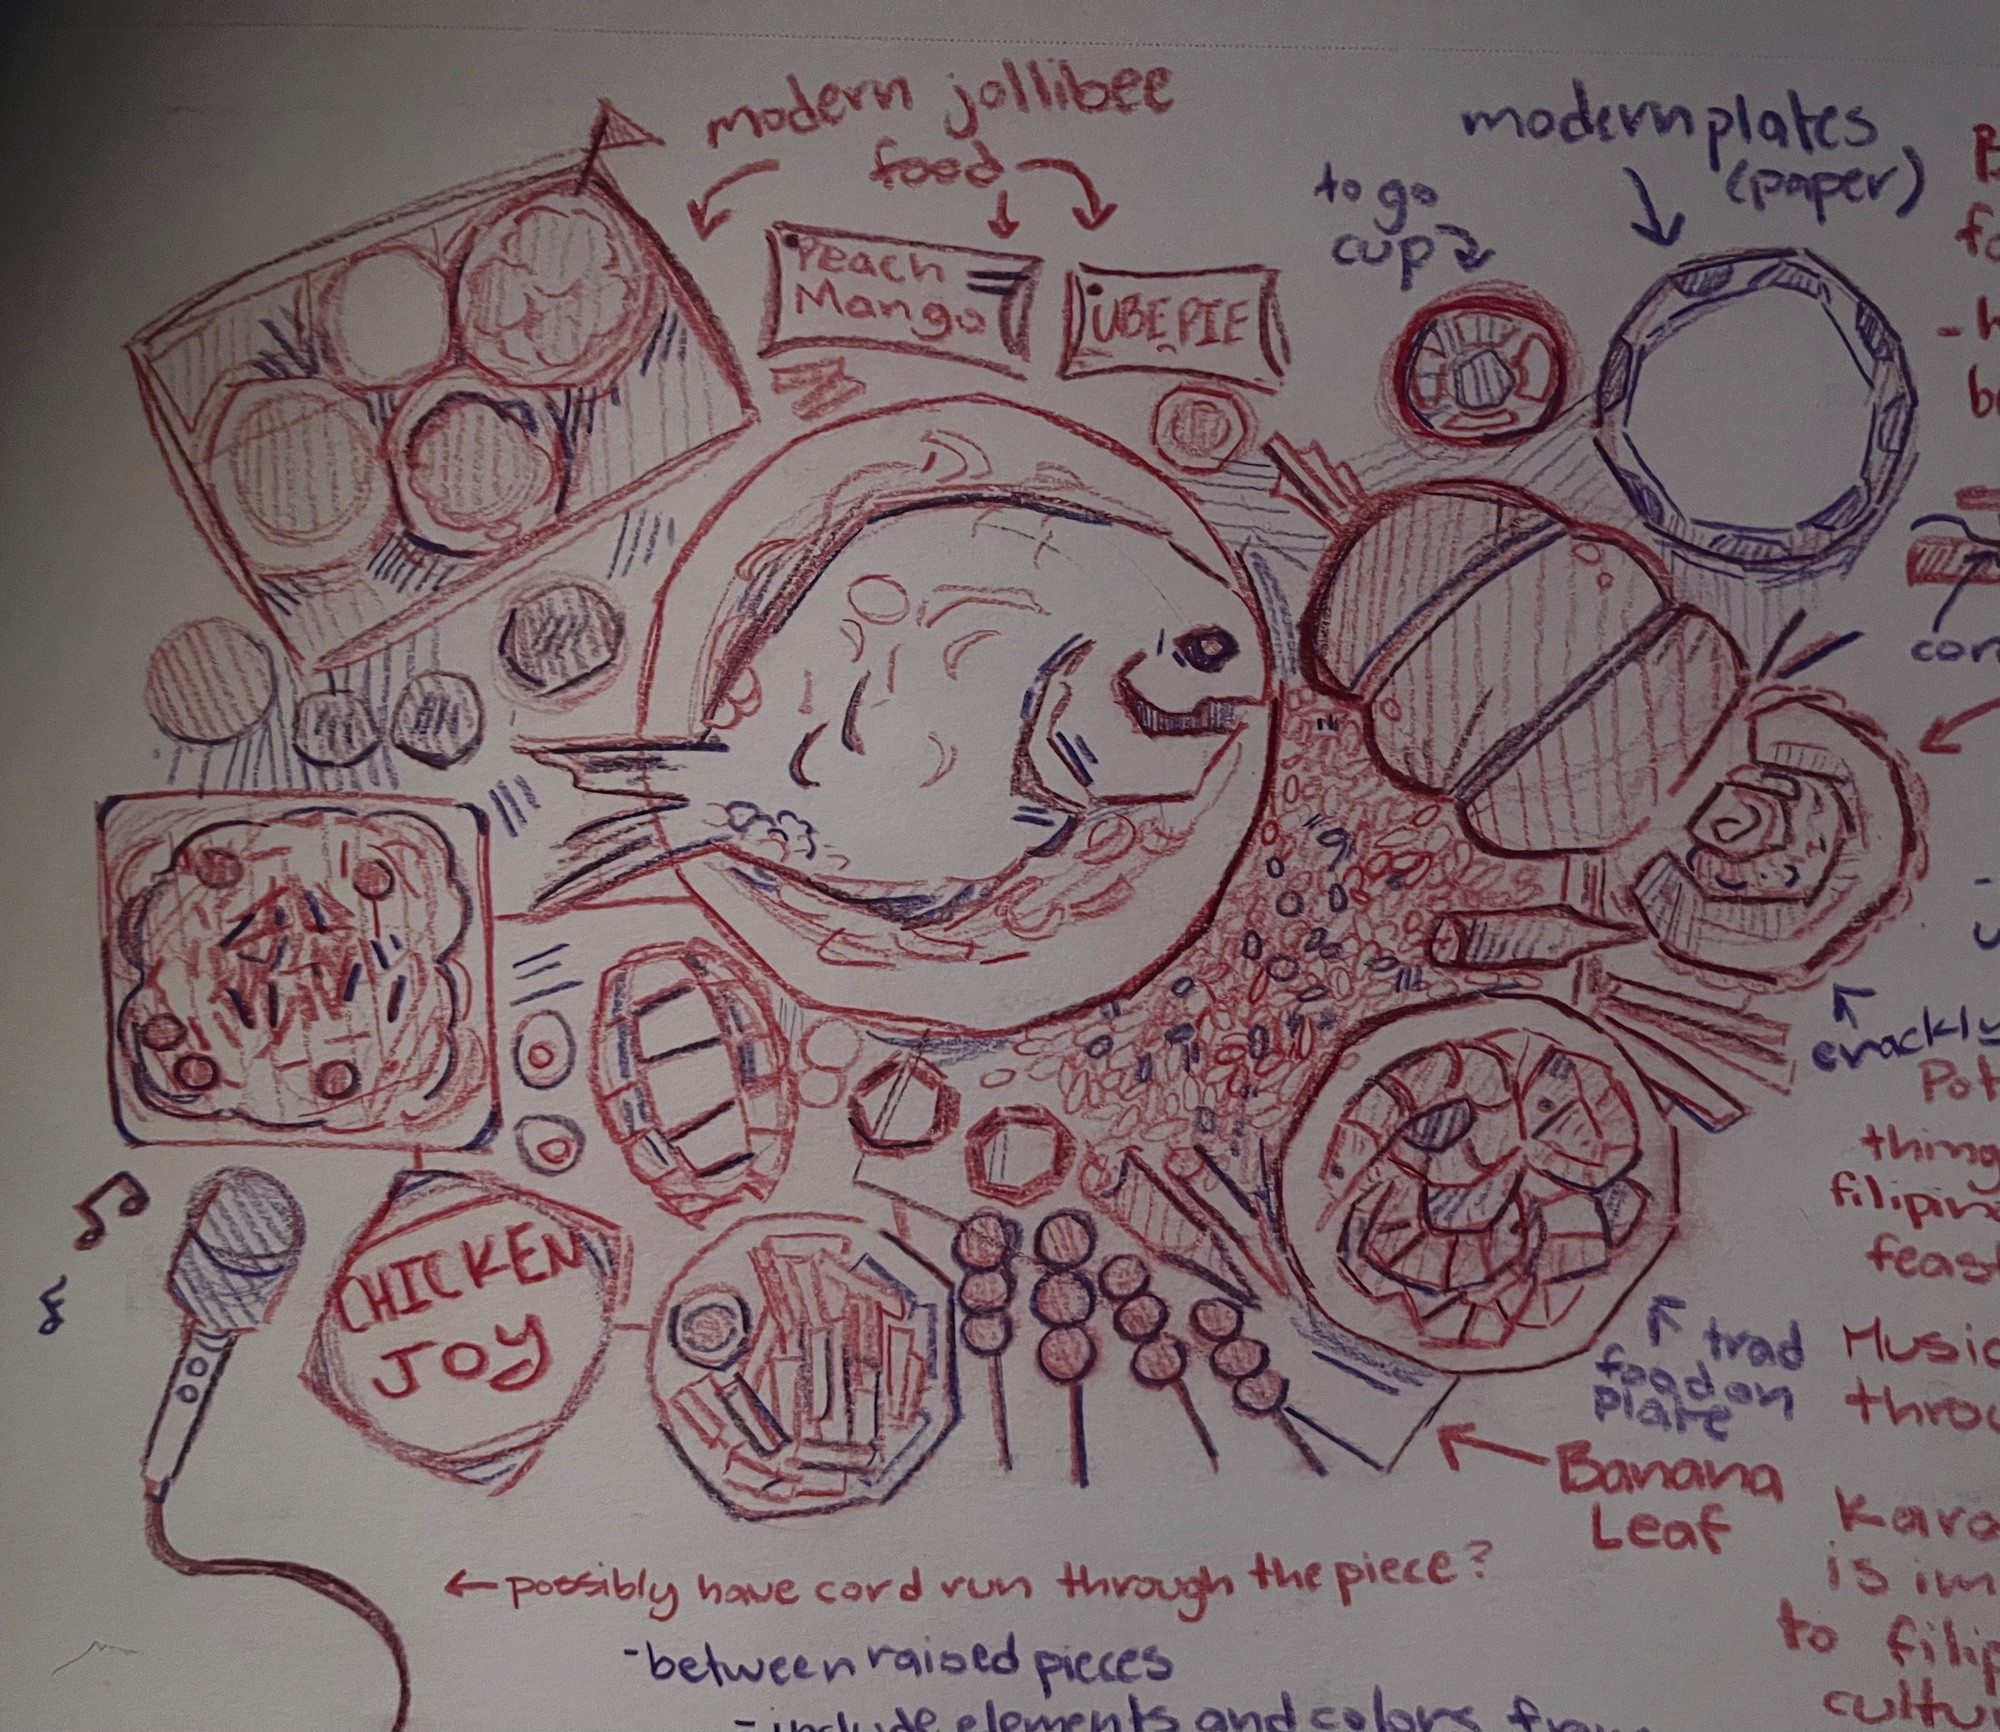 modern jollibee
food
Peach
Mango
UBE PIE
to go
cup
modern plates
(paper)
CHICKEN
JOY
trad
food on
plate
Banana
Leaf
← possibly have cord run through the piece?
- between raised pieces
- include elements and colors from
filipin
feas
Music
is im
to filip
cultu